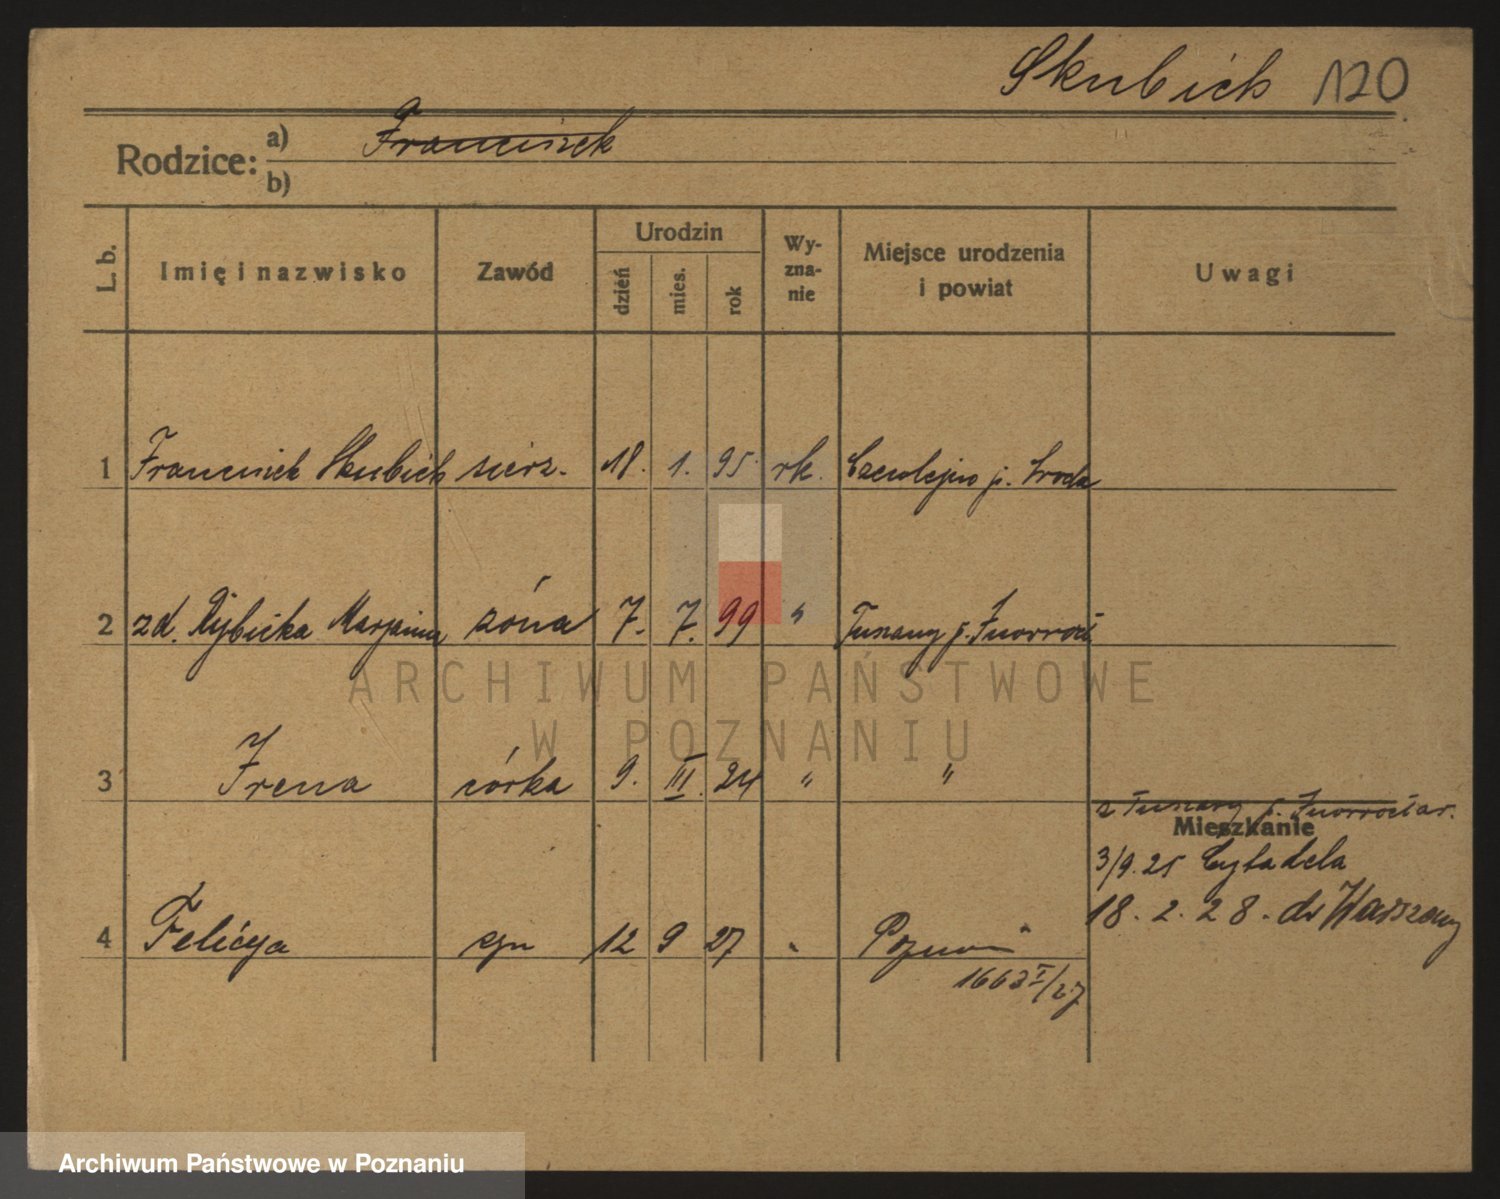 Skubich 120
Rodzice: a) Franciszek
b)
L. b. Imię i nazwisko Zawód Urodzin dzień mies. rok Wy-zna-nie Miejsce urodzenia i powiat Uwagi
1 Franciszek Skubich sierż. 18. 1. 95. rk. Czerlejno p. Środa
2 zd. Rybicka Marjanna żóna 7. 7. 99 " Tuczany p. Inowrocł
3 Irena córka 9. III. 24 " "
z Tuczany p. Inowrocław.
Mieszkanie
3/9.25 Cytadela
18. 2. 28. do Warszawy
4 Felicya 12 9 27 " Poznań
1663 I/27
ARCHIWUM PAŃSTWOWE
W POZNANIU
Archiwum Państwowe w Poznaniu